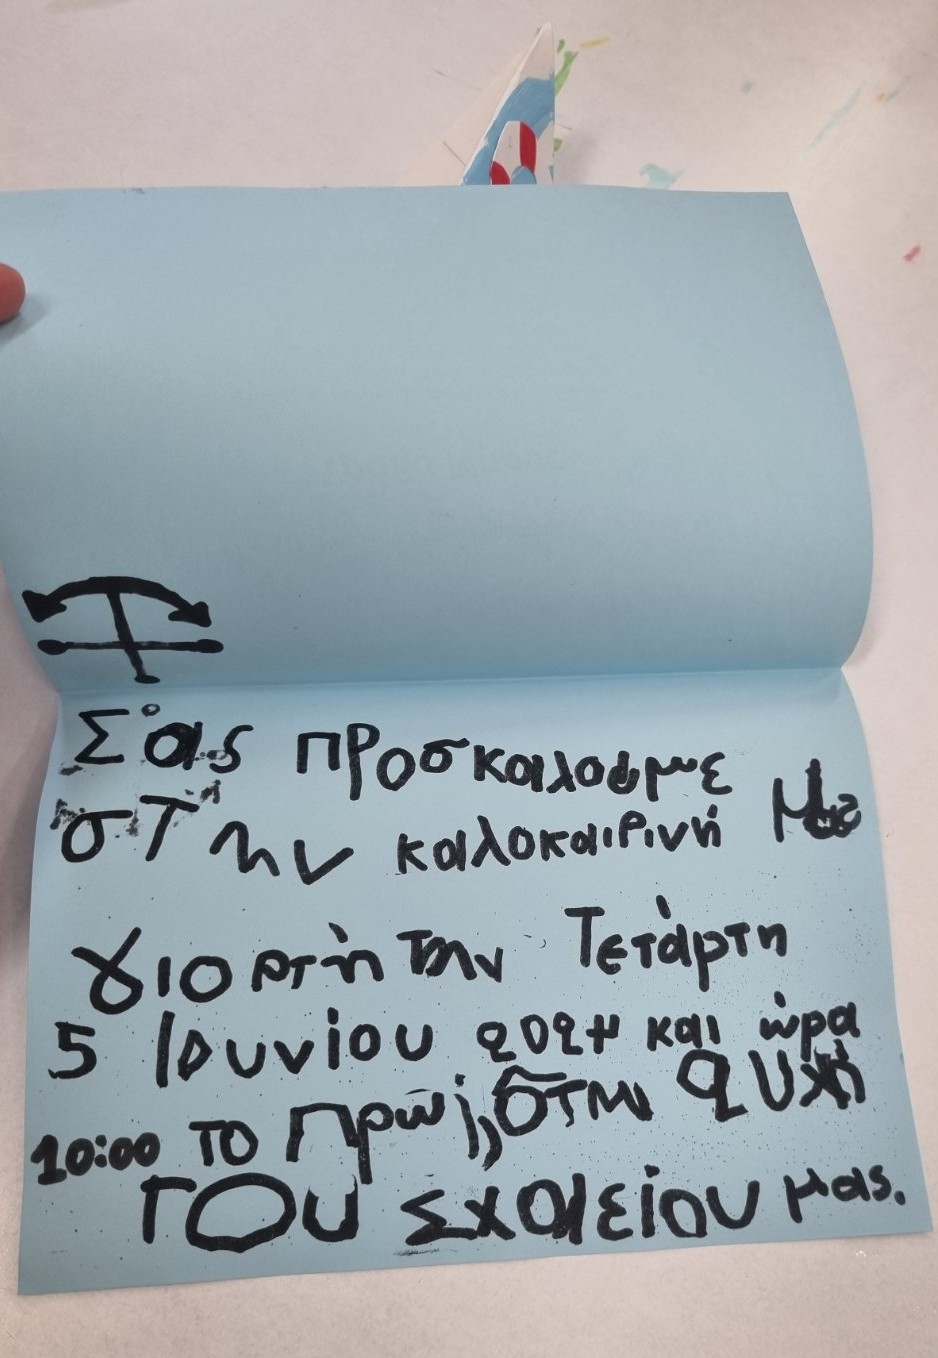 Σας προσκαλούμε
στην καλοκαιρινή μας
γιορτή την Τετάρτη
5 Ιουνίου 2024 και ώρα
10:00 το πρωί, στην αυλή
του σχολείου μας.